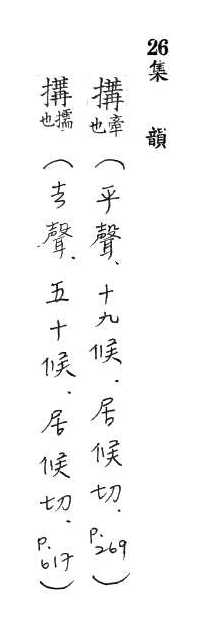 26集韻
搆牽也（平聲、十九候．居候切．P.269）
搆擩也（去聲、五十候．居候切．P.617）